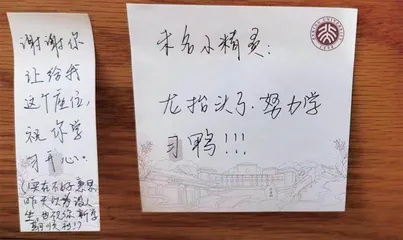 谢谢你
让给我
这个座位,
祝你学
习开心.
(实在不好意思
昨天以为没人
坐,也祝你新学
期顺利!)
未名小精灵:
龙抬头了,努力学
习鸭!!!